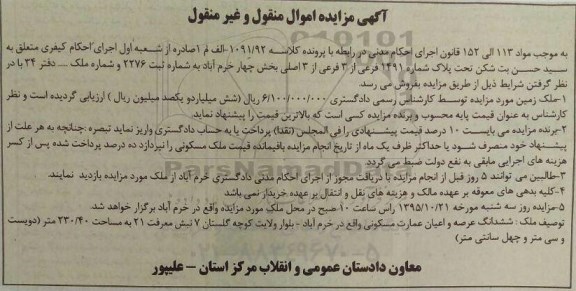 آگهی مزایده اموال منقول و غیر منقول
به موجب مواد ۱۱۳ الی ۱۵۲ قانون اجرای احکام مدنی در رابطه با پرونده کلاسه ۱۰۹۱/۹۲-الف م ۱صادره از شعبه اول اجرای احکام کیفری متعلق به
سید حسن بت شکن تحت پلاک شماره ۱۴۹۱ فرعی از ۳ فرعی از ۳ اصلی بخش چهار خرم آباد به شماره ثبت ۲۲۷۶ و شماره ملک .... دفتر ۳۴ با در
نظر گرفتن شرایط ذیل از طریق مزایده بفروش می رسد.
۱-ملک زمین مورد مزایده توسط کارشناس رسمی دادگستری ۶/۱۰۰/۰۰۰/۰۰۰ ریال (شش میلیاردو یکصد میلیون ریال ) ارزیابی گردیده است و نظر
کارشناس به عنوان قیمت پایه محسوب و برنده مزایده کسی است که بالاترین قیمت را پیشنهاد نماید.
۲-برنده مزایده می بایست ۱۰ درصد قیمت پیشنهادی را فی المجلس (نقدا) پرداخت یا به حساب دادگستری واریز نماید تبصره :چنانچه به هر علت از
پیشنهاد خود منصرف شود یا حداکثر ظرف یک ماه از تاریخ انجام مزایده باقیمانده قیمت ملک مسکونی را نپردازد ده درصد پرداخت شده پس از کسر
هزینه های اجرایی مابقی به نفع دولت ضبط می گردد.
۳-طالبین می توانند ۵ روز قبل از انجام مزایده با دریافت مجوز از اجرای احکام مدنی دادگستری خرم آباد از ملک مورد مزایده بازدید نمایند.
۴-کلیه بدهی های معوقه بر عهده مالک و هزینه های نقل و انتقال بر عهده خریدار می باشد
۵-مزایده روز سه شنبه مورخه ۱۳۹۵/۱۰/۲۱ راس ساعت ۱۰ صبح در محل ملک مورد مزایده واقع در خرم آباد برگزار خواهد شد.
توصیف ملک : ششدانگ عرصه و اعیان عمارت مسکونی واقع در خرم آباد - بلوار ولایت کوچه گلستان ۷ نبش معرفت ۲۱ به مساحت ۲۳۰/۴۰ متر (دویست
و سی متر و چهل سانتی متر)
معاون دادستان عمومی و انقلاب مرکز استان - علیپور